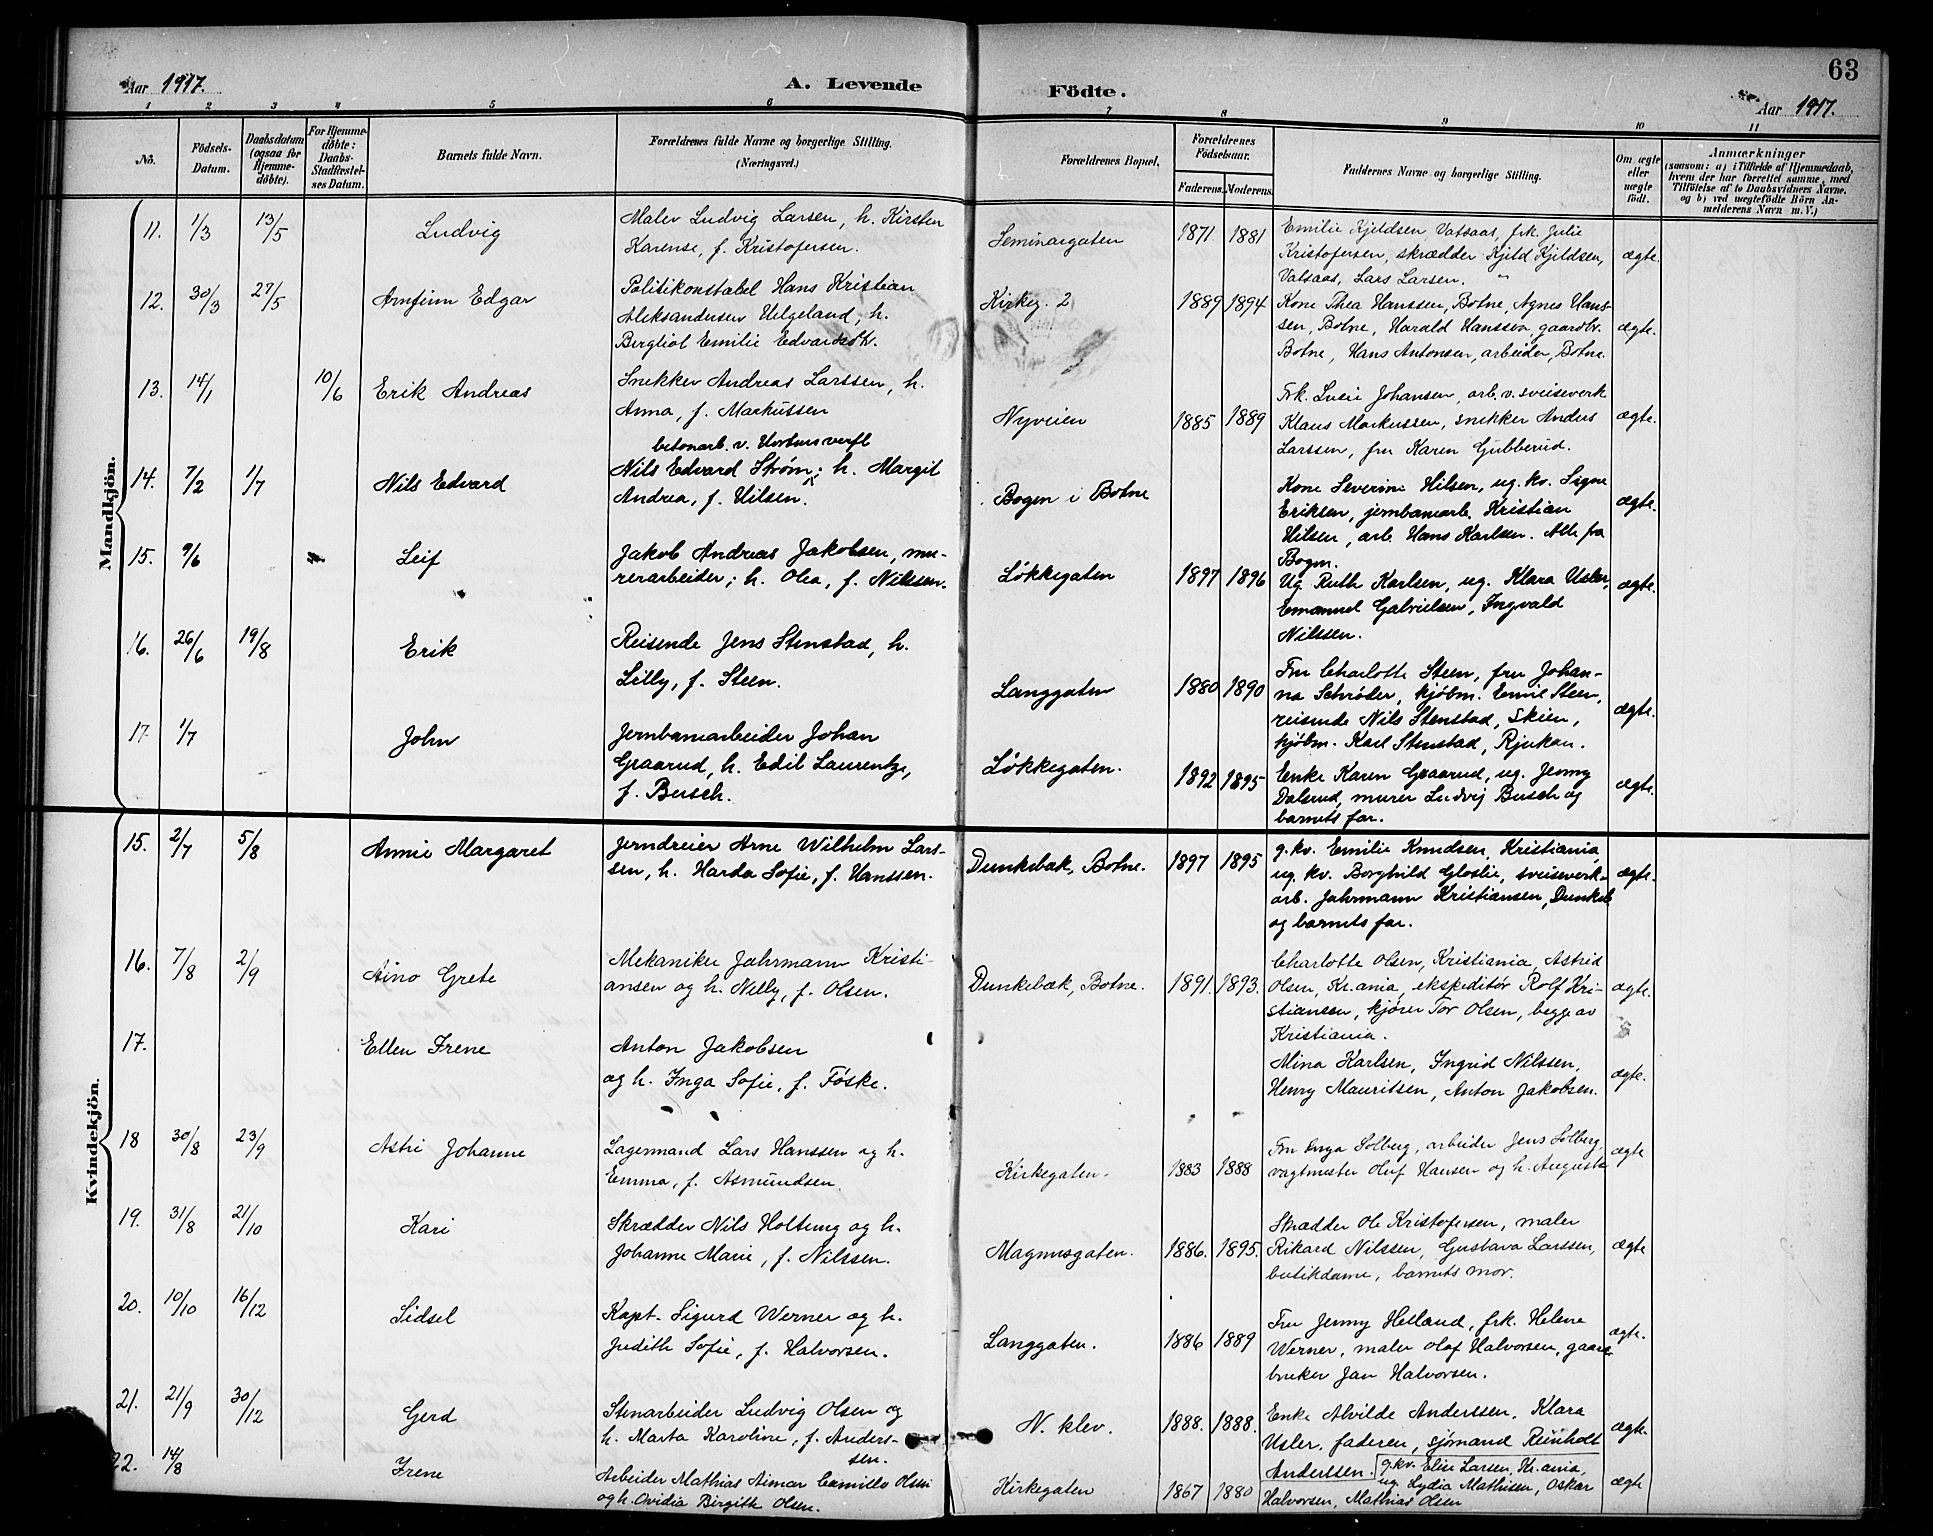 63
Aar 1917. A. Levende Födte. Aar 1917.
1 2 3 4 5 6 7 8 9 10 11
No.
Födsels-Datum.
Daabsdatum (ogsaa for Hjemme-döbte).
For Hjemme-döbte: Daabs-Stadfæstel-ses Datum.
Barnets fulde Navn.
Forældrenes fulde Navne og borgerlige Stilling.
(Næringsvei.)
Forældrenes Bopæl.
Forældrenes Födselsaar.
Faderens. Moderens.
Faddernes Navne og borgerlige Stilling.
Om ægte eller uægte födt.
Anmærkninger
(saasom: a) i Tilfælde af Hjemmedaab,
hvem der har forrettet samme, med
Tilföielse af to Daabsvidners Navne.
og b) ved uægtefödte Börn An-
melderens Navn m. V.)
Mandkjön.
11. 1/3 13/5 Ludvig
Maler Ludvig Larsen, h. Kirsten
Karense, f. Kristofersen.
Seminargaten 1871 1881
Emilie Kjeldsen, Vatsaas, frk. Julie
Kristofersen, skrædder Kjeld Kjeldsen,
Vatsaas, Lars Larsen. "
ægte.
12. 30/3 27/5 Arnfinn Edgar
Politikonstabel Hans Kristian
Aleksandersen Helgeland, h.
Bergliot Emilie Edvardsdtr.
Kirkeg. 2 1889 1894
Kone Thea Hanssen, Botne, Agnes Hans-
sen, Botne, Harald Hanssen, gaardbr.
Botne, Hans Antonsen, arbeider, Botne.
ægte.
13. 14/1 10/6 Erik Andreas
Snekker Andreas Larssen, h.
Anna, f. Markussen
Nyveien 1885 1889
Frk. Lucie Johansen, arb. v. sveiseverk
Klaus Markussen, snekker Anders
Larssen, fru Karen Gubberud.
ægte.
14. 7/2 1/7 Nils Edvard
betonarb. v. Hortens verft
Nils Edvard Strøm; h. Margit
Andrea, f. Hilsen.
Bogen i Botne
Kone Severine Hilsen, ug. kv. Signe
Eriksen, jernbanarb. Kristian
Hilsen, arb. Hans Karlsen. Alle fra
Bogen.
ægte.
15. 9/6 Leif
Jakob Andreas Jakobsen, mu-
rerarbeider; h. Olea, f. Nilssen.
Løkkegaten 1897 1896
Ug. Ruth Karlsen, ug. Klara Usler,
Emanuel Gabrielsen, Ingvald
Nilssen.
ægte.
16. 26/6 19/8 Erik
Reisende Jens Stenstad, h.
Lilly, f. Steen.
Langgaten 1880 1890
Fru Charlotte Steen, fru Johan-
na Schrøder, kjøbm. Emil Steen,
reisende Nils Stenstad, Skien,
kjøbm. Karl Stenstad, Rjukan.
ægte.
17. 1/7 John
Jernbanarbeider Johan
Graarud, h. Edil Laurentze,
f. Busch.
Løkkegaten. 1892 1895
Enke Karen Graarud, ug. Jenny
Dalsrud, murer Ludvig Busch og
barnets far.
ægte.
Kvindekjön.
15. 2/7 5/8 Annie Margaret
Jerndreier Arne Wilhelm Lars-
sen, h. Harda Sofie, f. Hanssen.
Dunkebæk, Botne. 1897 1895
g. kv. Emilie Knudsen, Kristiania,
ug. kv. Borghild Gloslie, sveiseverk-
arb. Jahrmann Kristiansen, Dunkeb.
og barnets far.
ægte.
16. 7/8 2/9 Aino Grete
Mekaniker Jahrmann Kristi-
ansen og h. Nelly, f. Olsen.
Dunkebæk, Botne. 1891. 1893.
Charlotte Olsen, Kristiania, Astrid
Olsen, Kr.ania, ekspeditør Rolf Kri-
stiansen, kjører Tor Olsen, begge av
Kristiania.
ægte.
17. Ellen Irene
Anton Jakobsen
og h. Inga Sofie, f. Føske.
Mina Karlsen, Ingrid Nilssen,
Henry Mauritsen, Anton Jakobsen.
ægte.
18 30/8 23/9 Astri Johanne
Lagermand Lars Hanssen og h.
Emma, f. Asmundsen.
Kirkegaten. 1883 1888
Fru Inga Solberg, arbeider Jens Solberg,
vagtmester Oluf Hansen og h. Augusta
ægte
19. 31/8 21/10 Kari
Skrædder Nils Holtung og h.
Johanne Marie, f. Nilssen.
Magnusgaten. 1886. 1895.
Skrædder Ole Kristofersen, maler
Rikard Nilssen, Gustava Larssen,
butikdame, barnets mor.
ægte
20. 10/10 16/12 Sidsel
Kapt. Sigurd Werner og h.
Judith Sofie, f. Halvorsen.
Langgaten. 1886 1889
Fru Jenny Helland, frk. Helene
Werner, maler Olaf Halvorsen, gaard-
bruker Jan Halvorsen.
ægte.
21. 21/9 30/12 Gerd
Stenarbeider Ludvig Olsen og
h. Marta Karoline, f. Anders-
sen.
N. klev. 1888. 1888.
Enke Alvilde Anderssen, Klara
Usler, faderen, sjømand Reinholt
Anderssen.
ægte.
22. 14/8 Irene
Arbeider Mathias Aimar Camillo Olsen
og h. Ovidia Birgitte Olsen.
Kirkegaten 1867 1880
g.kv. Elise Larsen, Kr.ania,
ug. Lydia Mathisen, Oskar
Halvorsen, Mathias Olsen
ægte